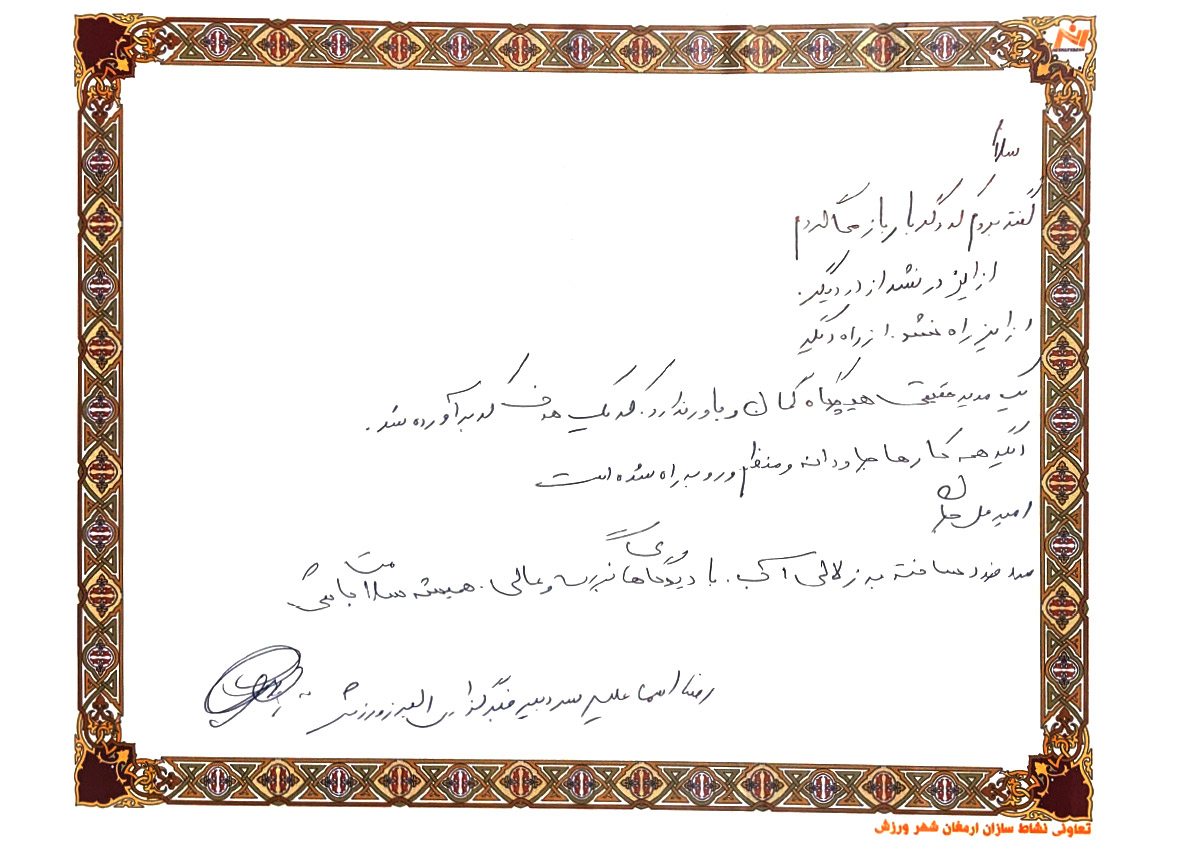 سلام
گفته بودم که دگر بار باز می گردم
از این در نشد از در دیگر.
از این راه نشد. از راه دیگر
یک مدیر حقیقی هیچگاه گمان و باور ندارد. که یک هدف که برآورده شد.
دیگر همه کارها جاودانه و منظم و رو به راه شده است
امید علی جان
مرد خود ساخته به زلالی آب. با دیدگاها بزرگ و عالی. همیشه سلامت باشی
رضا اسماعیلی سردبیر خبرگزاری البرز ورزش
تعاونی نشاط سازان ارمغان شهر ورزش